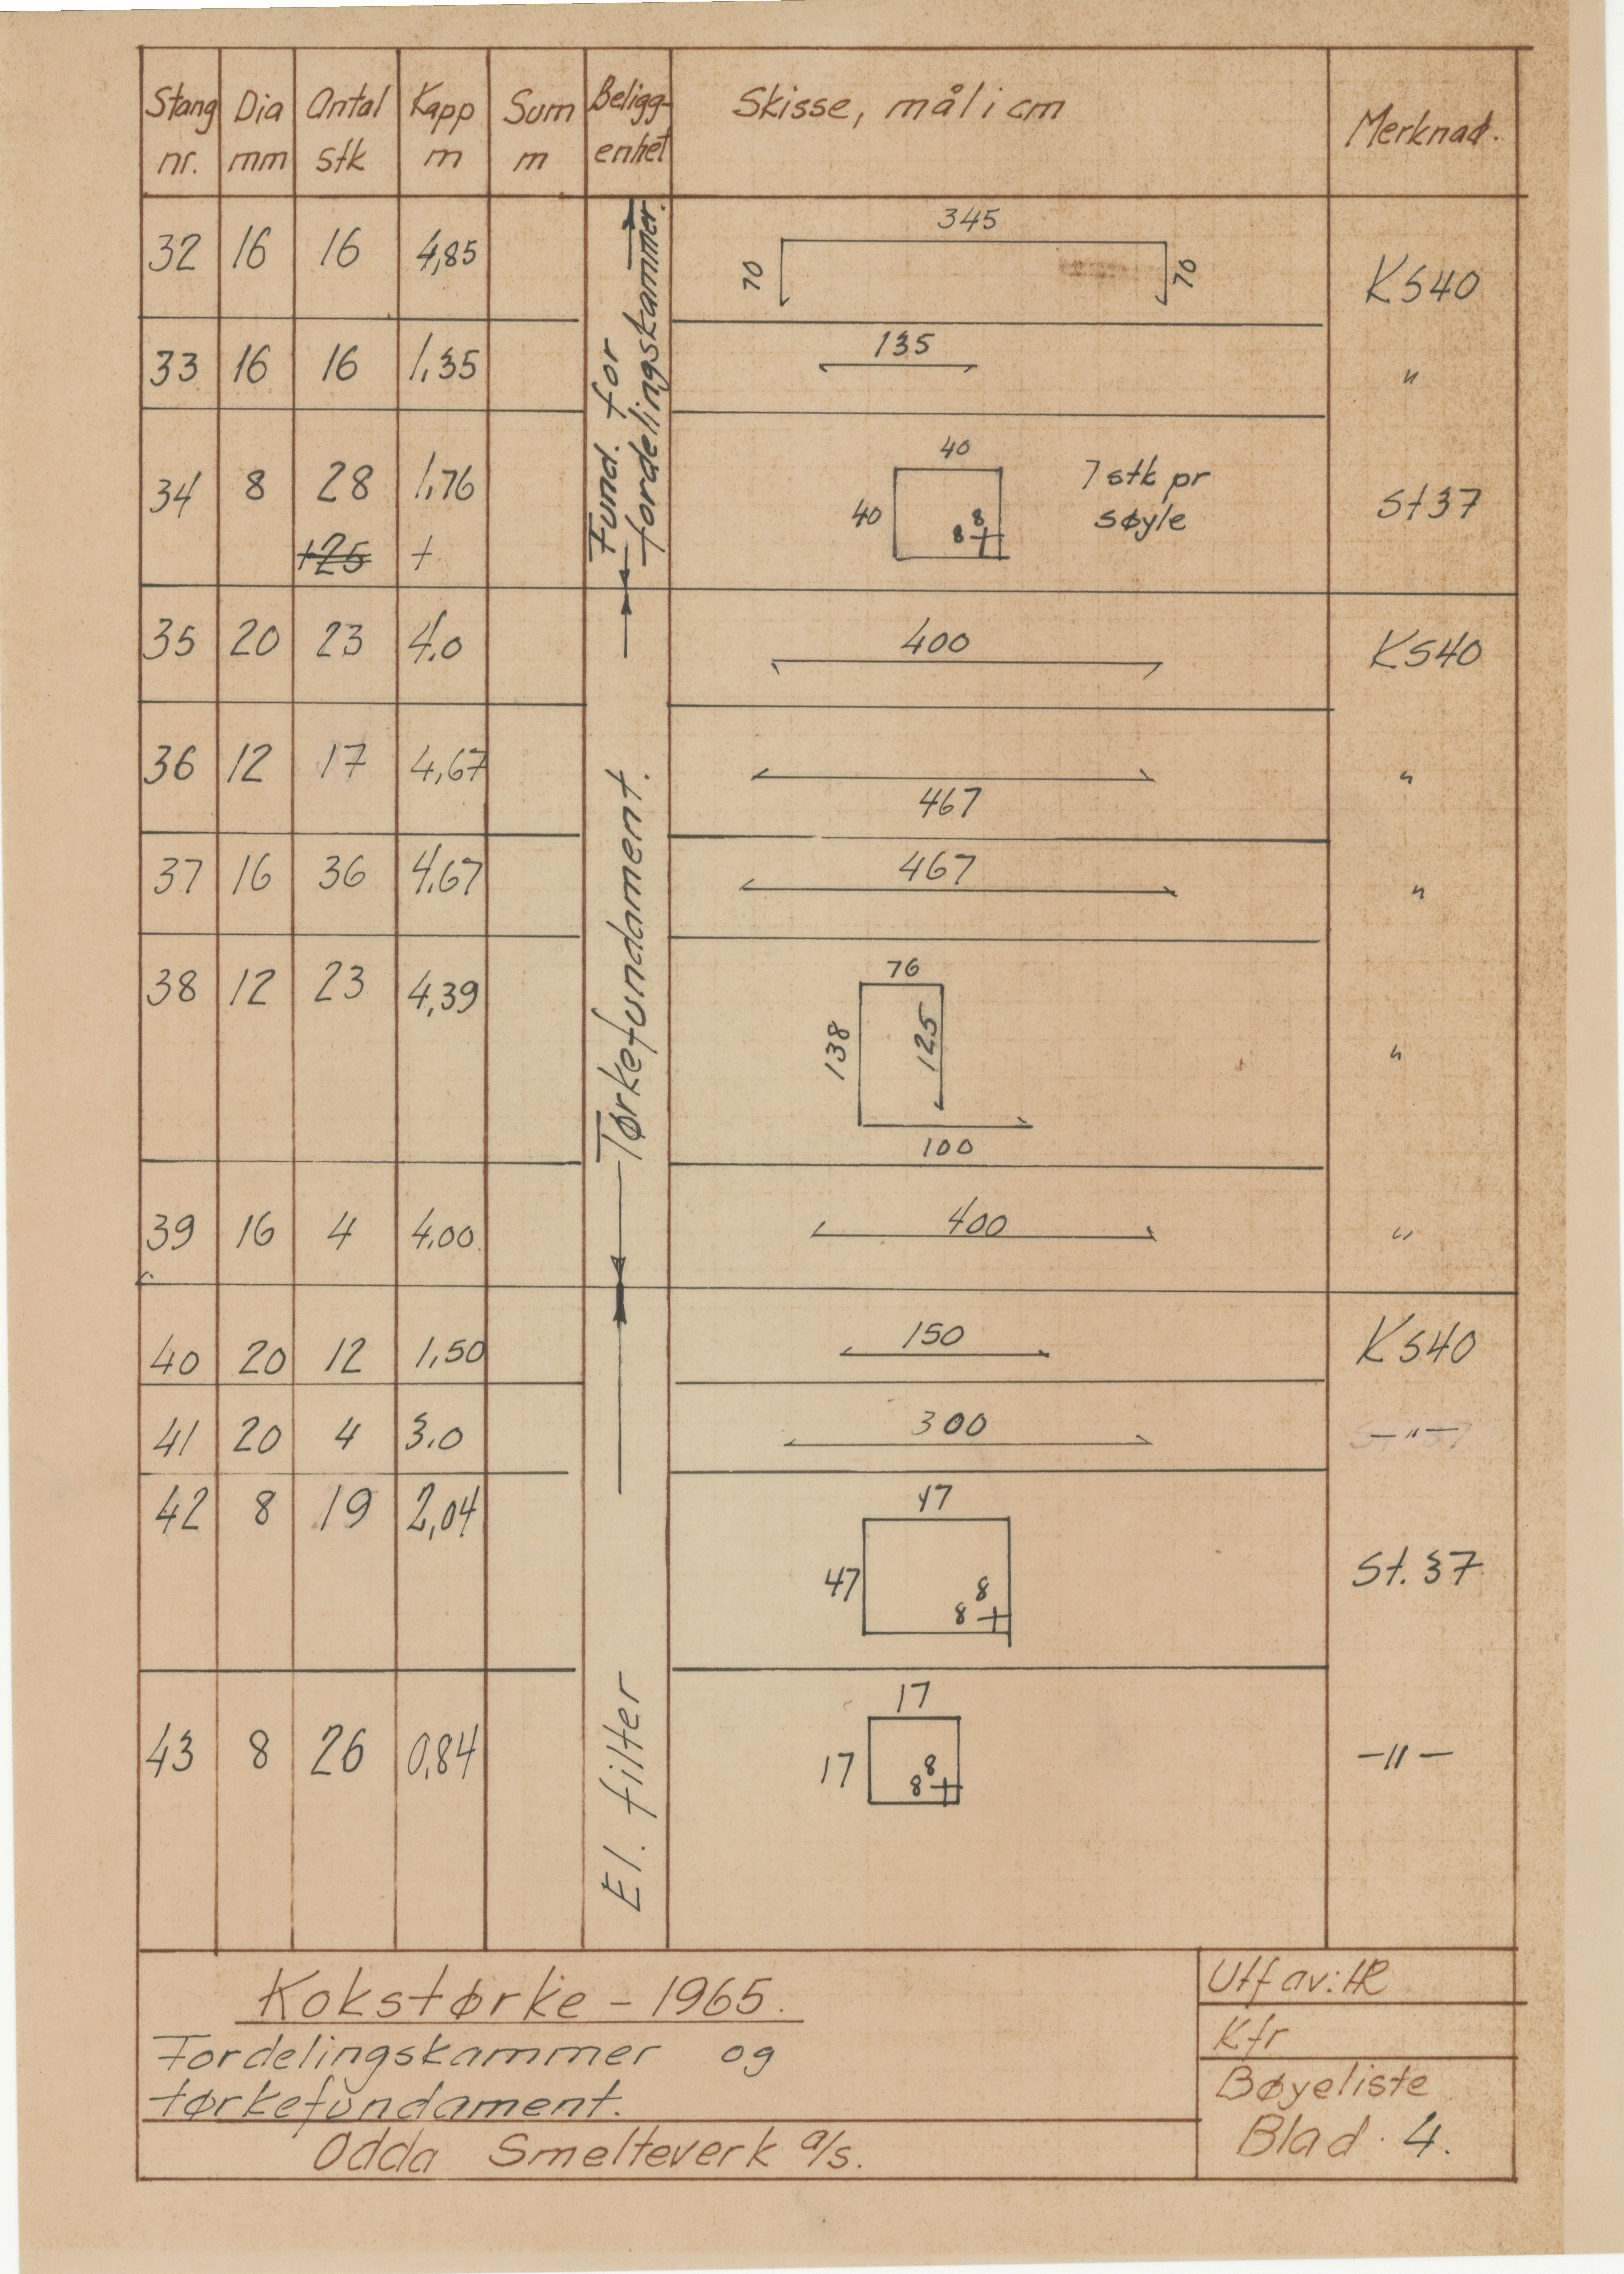 Stang nr. Dia mm Antal stk Kapp m Sum m Beligg-enhet Skisse, mål i cm Merknad.
Fund. for fordelingskammer.
32 16 16 4,85 345 70 70 KS40
33 16 16 1,35 135 "
34 8 28 1,76 40 40 8 8 7 stk pr St37
søyle
+25 +
Tørkefundament.
35 20 23 4,0 400 KS40
36 12 17 4,67 467 "
37 16 36 4,67 467 "
38 12 23 4,39 76 138 125 100 "
39 16 4 4,00 400 "
El. filter
40 20 12 1,50 150 KS40
41 20 4 3,0 300 —"—
42 8 19 2,04 47 47 8 8 St.37
43 8 26 0,84 17 17 8 8 —"—
Kokstørke - 1965.
Fordelingskammer og
tørkefundament.
Odda Smelteverk a/s.
Utf av: HR
Kfr
Bøyeliste
Blad. 4.